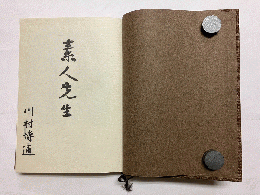 素人先生
川村博通